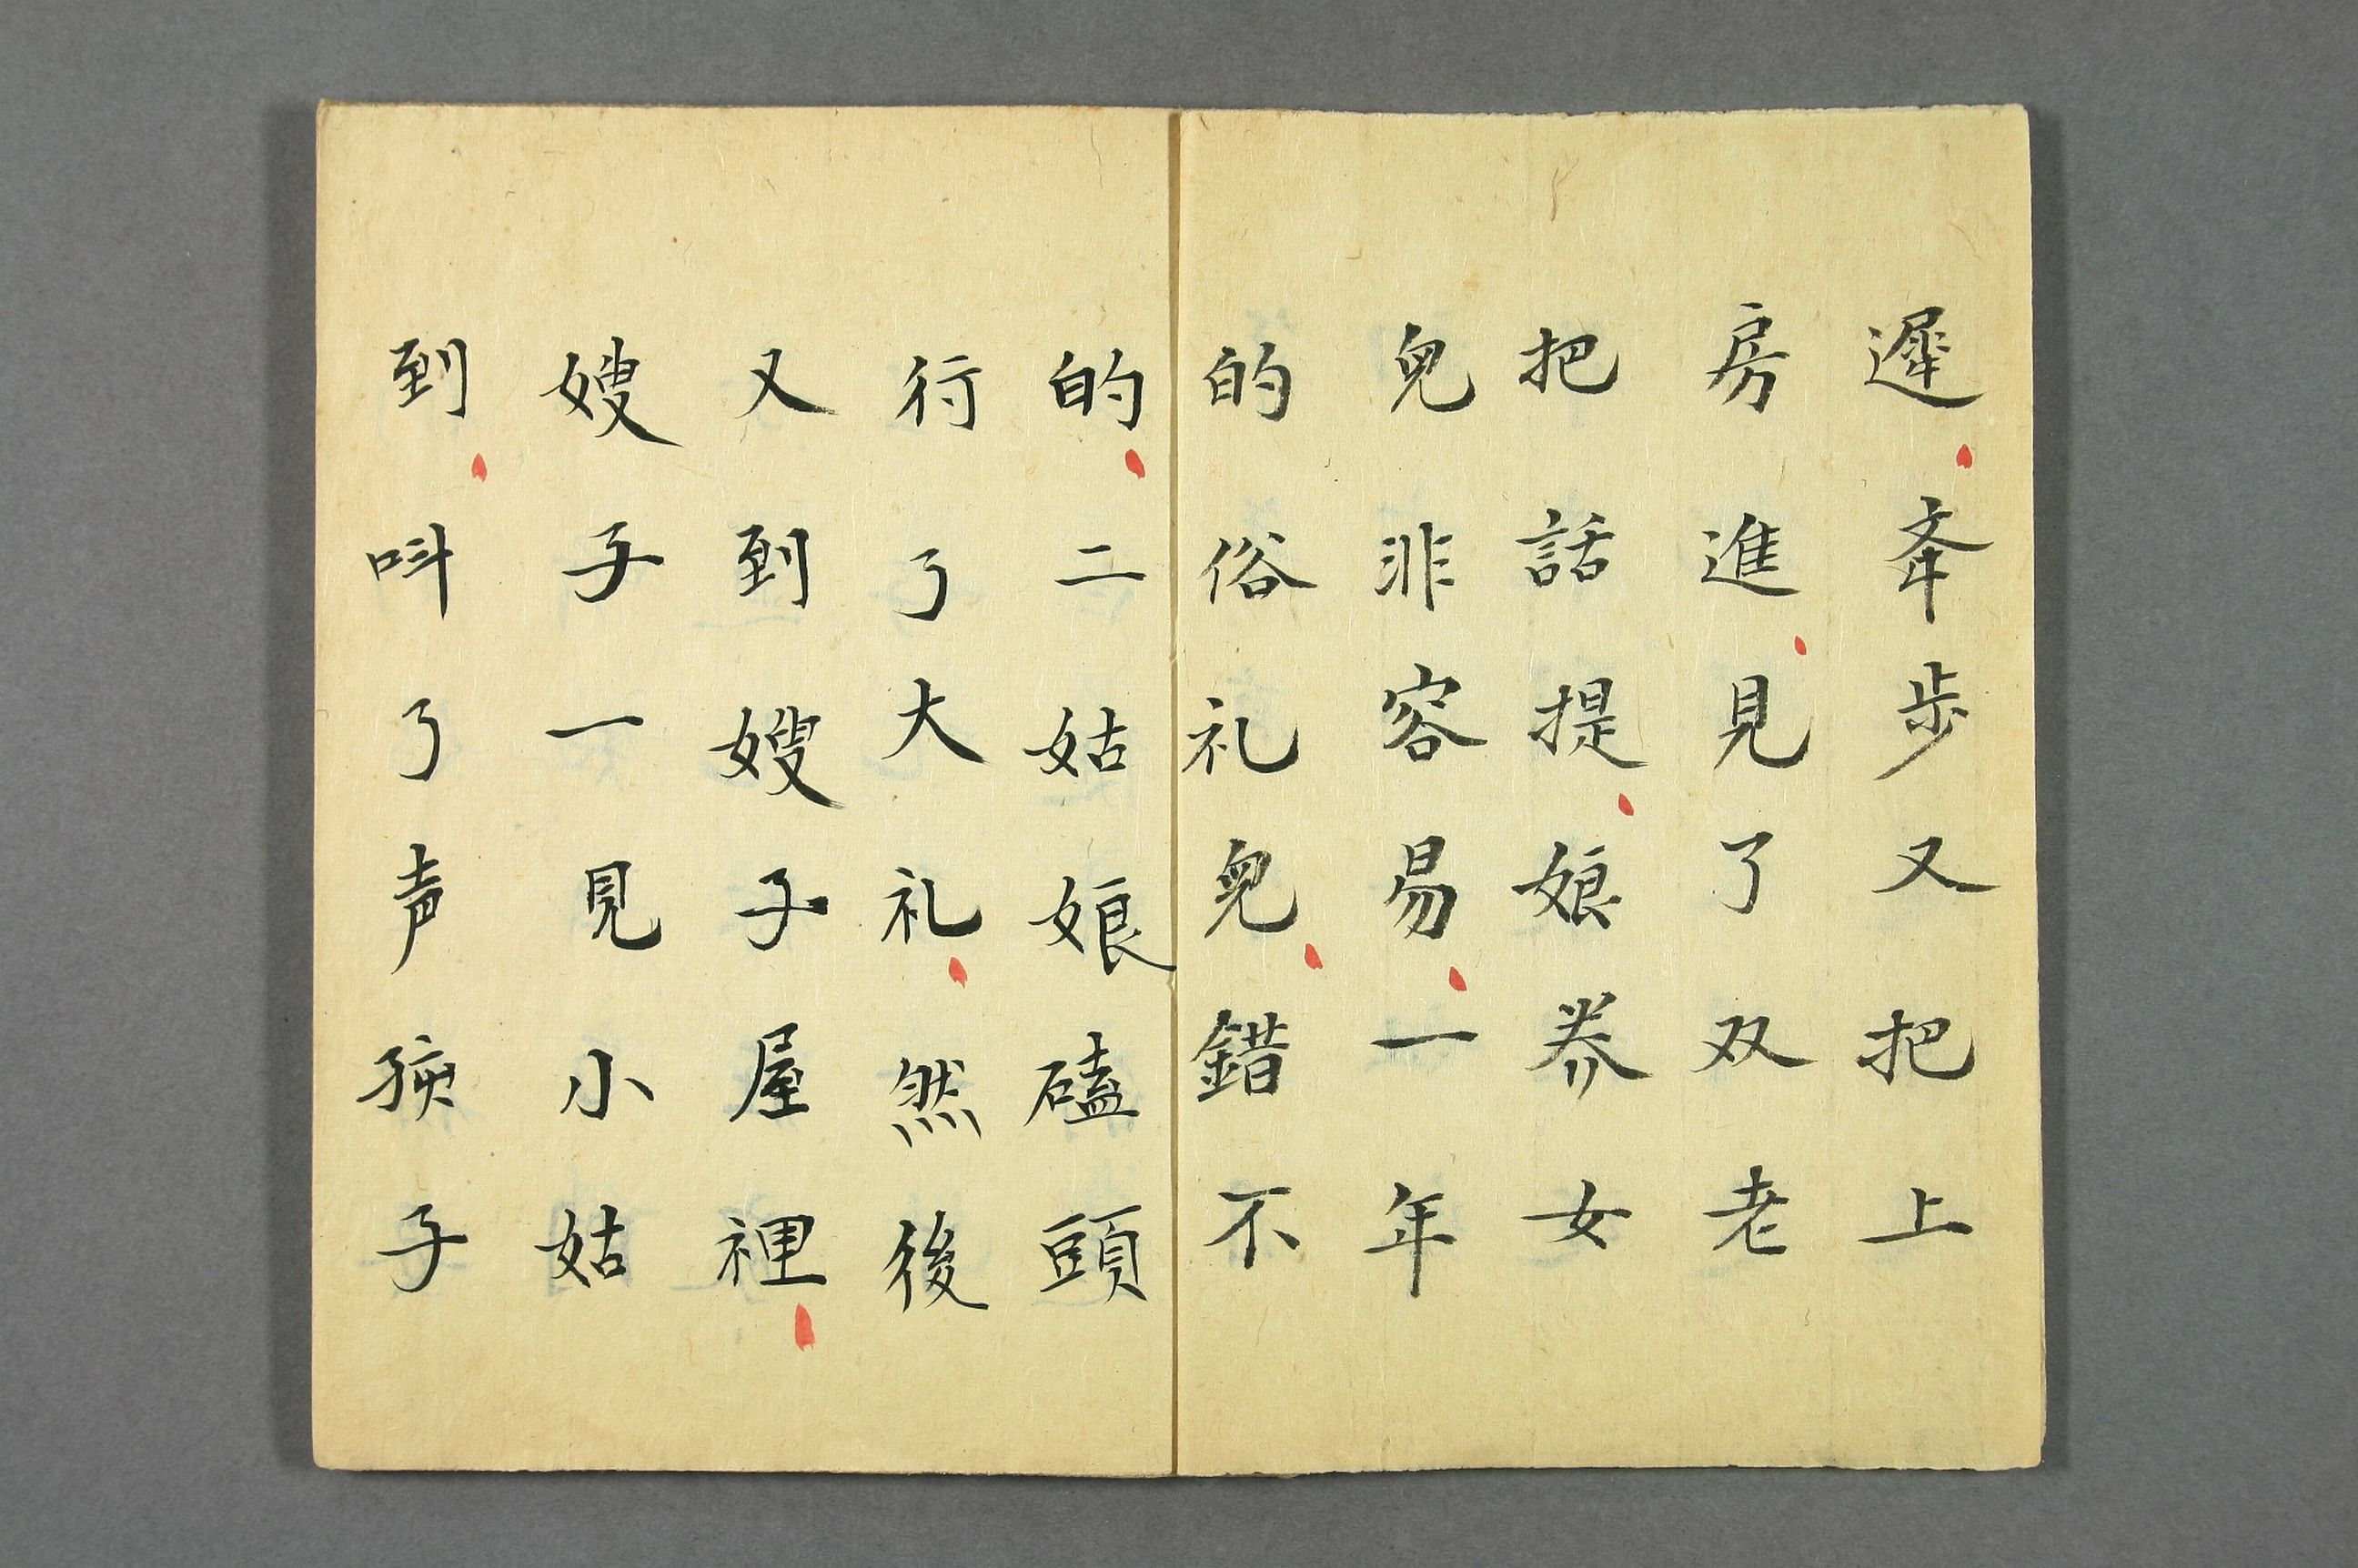 遲夆步又把上
房進見了双老
把話提娘养女
兒非容易一年
的俗礼兒錯不
的二姑娘磕頭
行了大礼然後
又到嫂子屋裡
嫂子一見小姑
到呌了声孩子